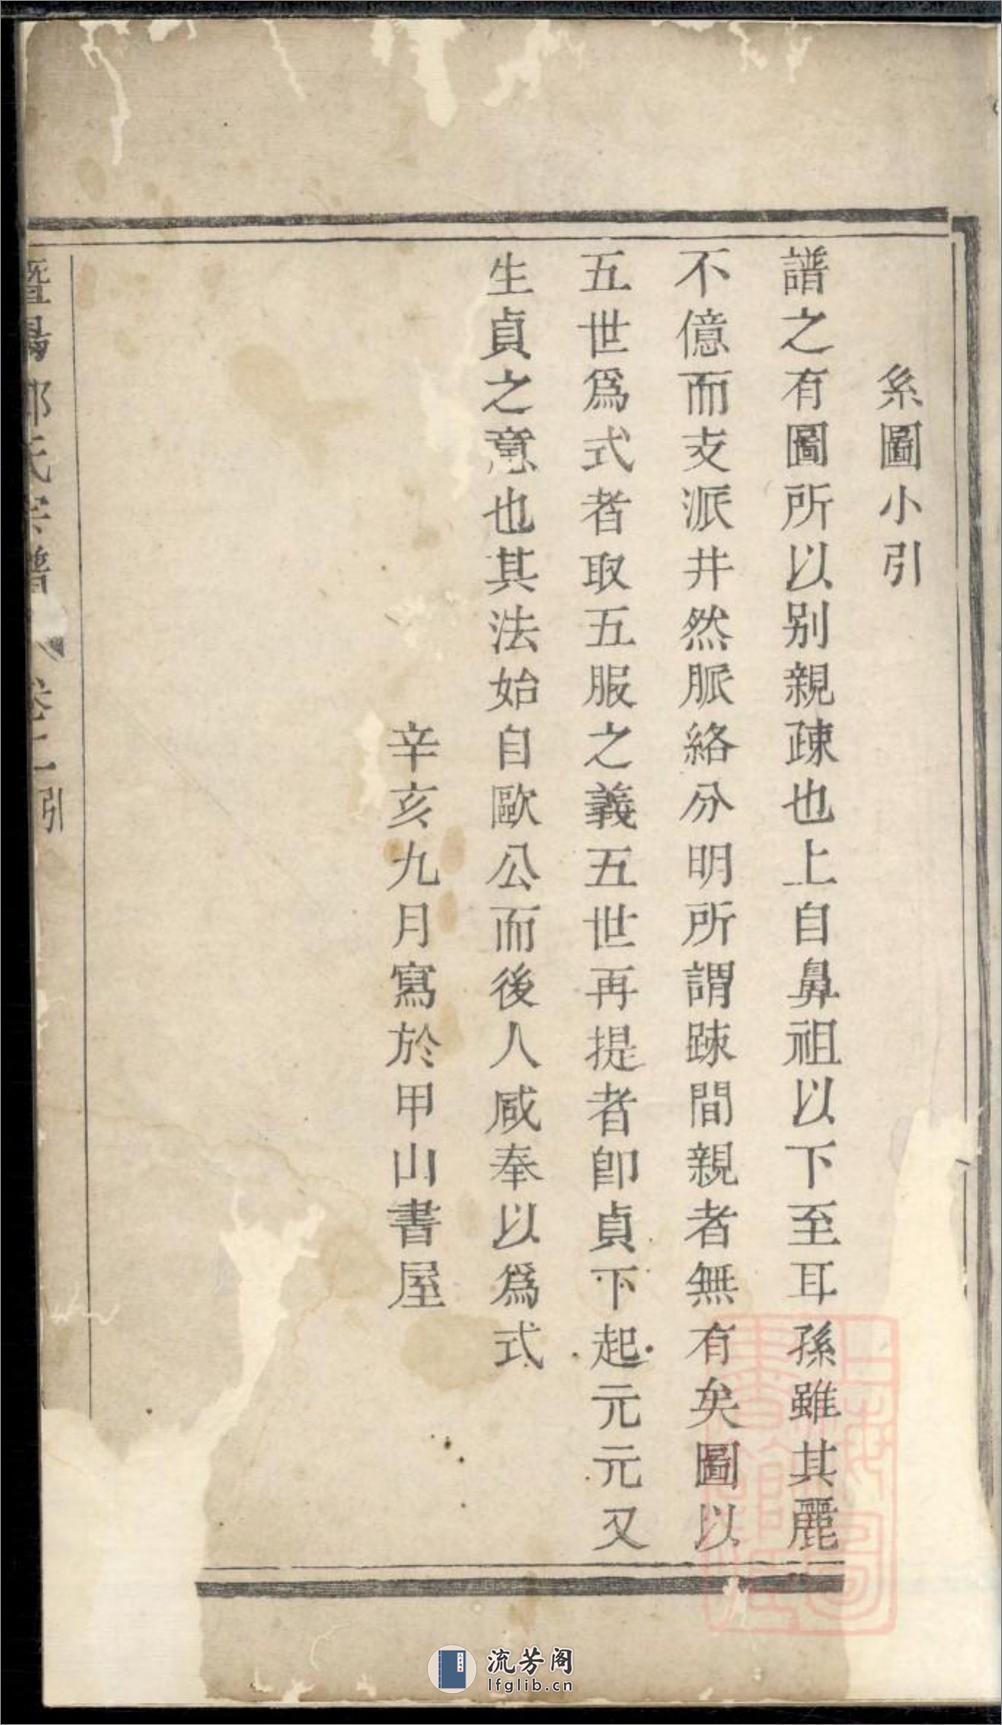 系圖小引
譜之有圖所以别親疎也上自鼻祖以下至耳孫雖其麗
不億而支派井然脈絡分明所謂踈間親者無有矣圖以
五世爲式者取五服之義五世再提者卽貞下起元元又
生貞之意也其法始自歐公而後人咸奉以爲式
辛亥九月寫於甲山書屋
暨陽 氏宗譜 卷 引
上海圖書館藏
流芳阁
lfglib.cn